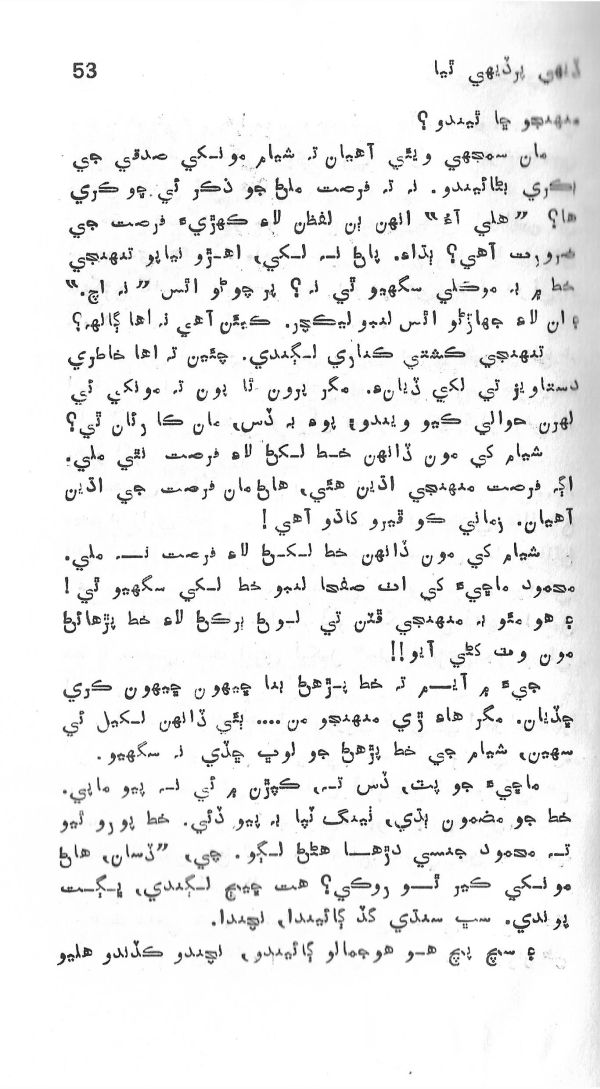 ڏيهي پرڏيهي ٿيا 53
منهنجو ڇا ٿيندو؟
مان سمجهي ويٺي آهيان تہ شيام مونکي صدقي جي
ٻڪري بڻائيندو. نہ تہ فرصت ملڻ جو ذڪر ئي ڇو ڪري
ها؟ ”هلي آءُ“ انهن ٻن لفظن لاءِ ڪهڙيءَ فرصت جي
ضرورت آهي؟ ٻڌاءِ. پاڻ نہ لکي، اهڙو نياپو تنهنجي
خط ۾ بہ موڪلي سگهيو ٿي نہ؟ پر چوڻو اٿس ”نہ اچ.“
۽ ان لاءِ جهاڙڻو اٿس لنبو ليڪچر. ڪيئن آهي نہ اها ڳالهہ؟
تنهنجي ڪشتي ڪناري لڳندي. چئين تہ اها خاطري
دستاويز تي لکي ڏيانءِ. مگر پرون ٿا پون تہ مونکي ئي
لهرن حوالي ڪيو ويندو؛ پوءِ بہ ڏس، مان ڪا رئان ٿي؟
شيام کي مون ڏانهن خط لکڻ لاءِ فرصت نٿي ملي.
اڳہ فرصت منهنجي اڌين هئي، هاڻ مان فرصت جي اڌين
آهيان. زماني ڪو ڦيرو کاڌو آهي!
شيام کي مون ڏانهن خط لکڻ لاءِ فرصت نہ ملي.
محمود ماڇيءَ کي اٺ صفحا لنبو خط لکي سگهيو ٿي!
۽ هو مئو بہ منهنجي ڦٽن تي لوڻ ٻرڪڻ لاءِ خط پڙهائڻ
مون وٽ کڻي آيو!!
جيءَ ۾ آيم تہ خط پڙهڻ بنا ڇيهون ڇيهون ڪري
ڇڏيان. مگر هاءِ ڙي منهنجو من.... ٻئي ڏانهن لکيل ئي
سهين، شيام جي خط پڙهڻ جو لوڀ ڇڏي نہ سگهيو.
ماڇيءَ جو پٽ، ڏس تہ، ڪپڙن ۾ ئي نہ پيو ماپي.
خط جو مضمون ٻڌي، ٽينگ ٽپا بہ پيو ڏئي. خط پورو ٿيو
تہ محمود جنسي دڙها هڻڻ لڳو. چي، ”ڏسان، هاڻ
مونکي ڪير ٿو روڪي؟ هت ڇيڄ لڳندي، ڀڳت
پوندي. سڀ سنڌي گڏ ڳائيندا، نچندا.
۽ سچ پچ هو هوجمالو ڳائيندو، نچندو ڪڏندو هليو